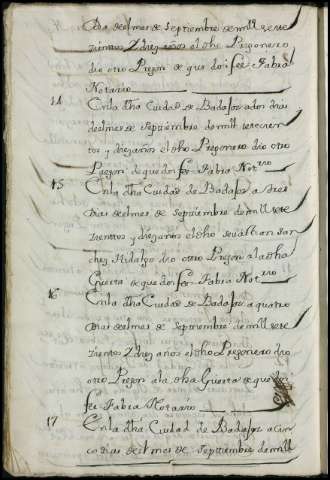 dia del mes de septiembre de mill sete
zientos y diez años el dho Pregonero
dio otro Pregon de que doi fee Fabra
Notario
14 En la dha Ciudad de Badajoz a dos dias
del mes de septiembre de mill setecien
tos y diez años el dho Pregonero dio otro
Pregon de que doi fee Fabra Notrio
15 En la dha Ciudad de Badajoz a tres
dias del mes de septiembre de mill sete
zientos y diez años el dho san
chez Hidalgo dio otro Pregon a la dha
Guerta de que doi fee Fabra Notrio
16 En la dha Ciudad de Badajoz a quatro
dias del mes de septiembre de mill sete
zientos y diez años el dho Pregonero dio
otro Pregon a la dha Guerta de que
fee Fabra Notario
17 En la dha Ciudad de Badajoz a cin
co dias del mes de septiembre de mill